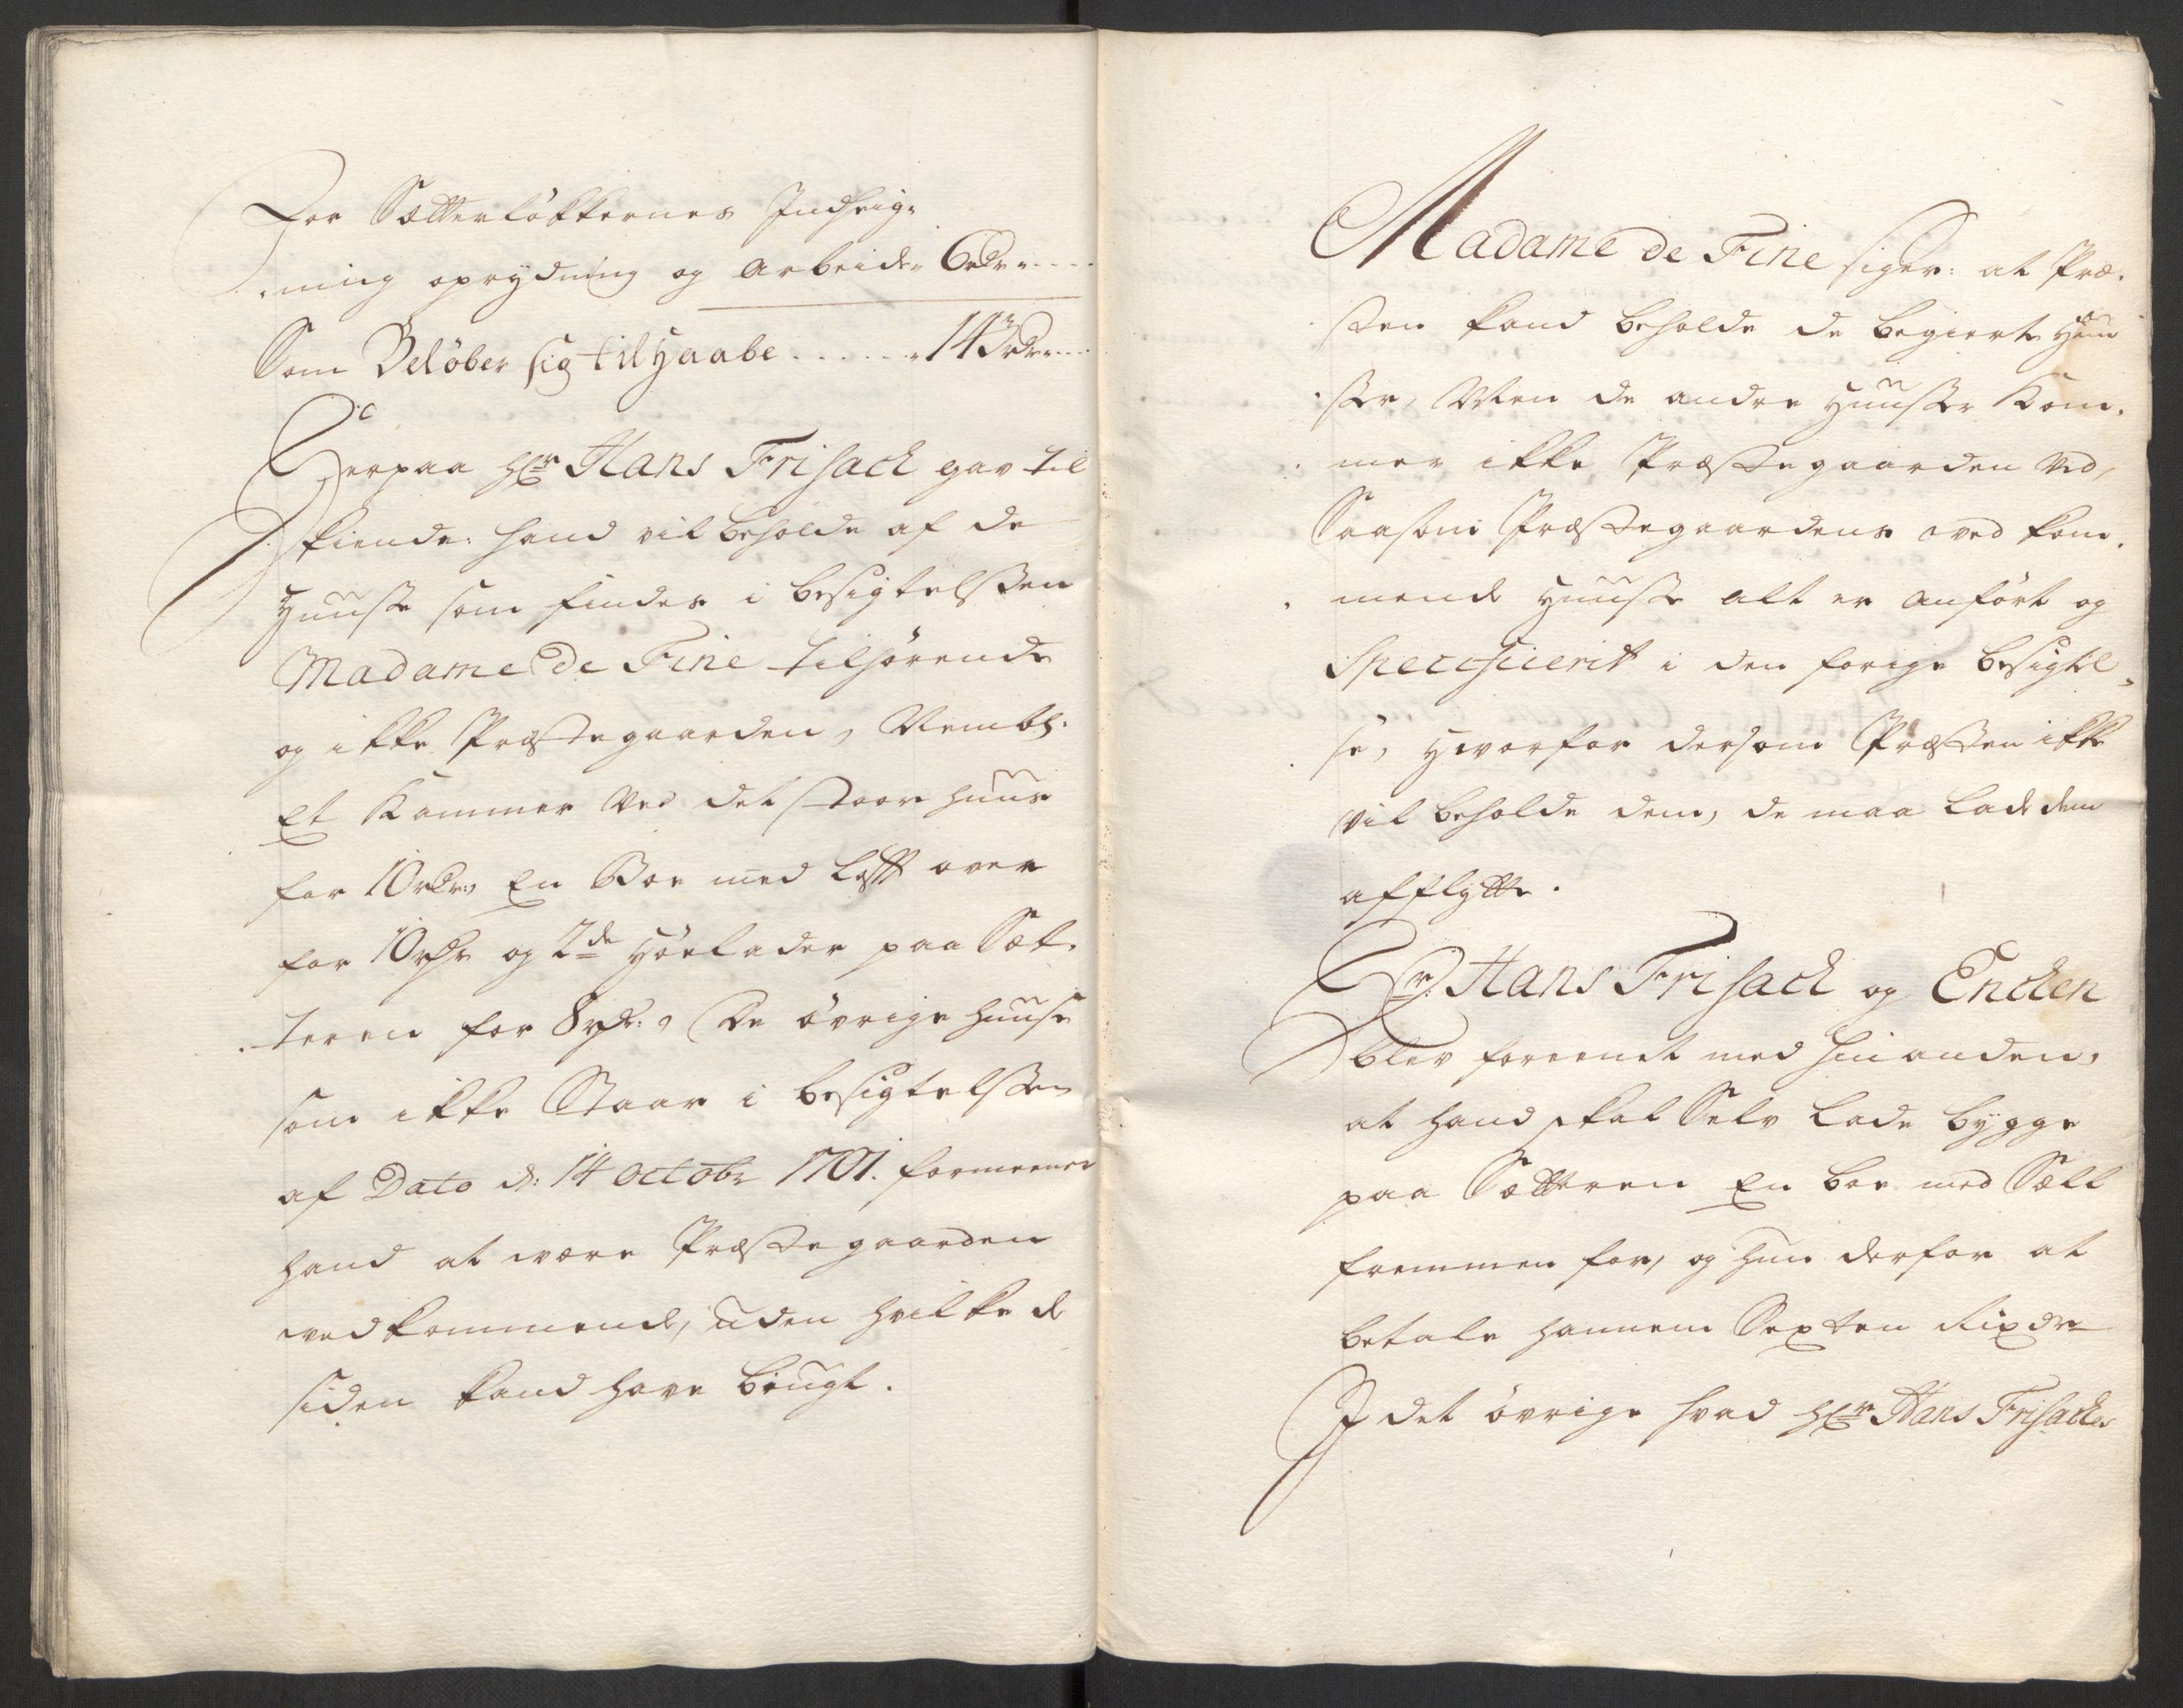 For Sætterløkkernes Indheig-
ning oprydning og arbeide 6 rdr
Som Beløber sig til Haabe . . . . . 143 rdr
Herpaa hr Hans Frisach gav til
kiende: hand vil beholde af de
Huusse som findes i besigtelssen
Madame de Fine tilhørende
og ikke Præstegaarden, Nembl:
Et Kammer ved det stoore huus
for 10 rdr, En Boe med Lofft over
for 10 rdr og 2de Høelader paa Sæt-
teren for 8 rdr: De øvrige huuse
som ikke Staar i besigtelssen
af Dato d: 14 octobr 1701. formeener
hand at være Præstegaarden
vedkommende, uden hvilke de
siden kand have bøugt.
Madame de Fine siger: at Præ-
sten kand beholde de begierte Huu-
sser, Men de andre Huusser Kom-
mer ikke Præstegaarden ved,
Saasom Præstegaardens ved kom-
mende Huusse alt er anført og
Specificerit i den forige besigtel-
se, Hvorfor dersom Præsten ikke
vil beholde dem, de maa lade dem
afflytte.
Hr: Hans Frisach og Encken
blev foreenet med hinanden,
at hand skal Selv lade bygge
paa Sætteren En boe med Sæll
fremmen for, og hun derfor at
betale hannem Sexten Rixdr
I det øvrige hvad hr Hans Frisaches